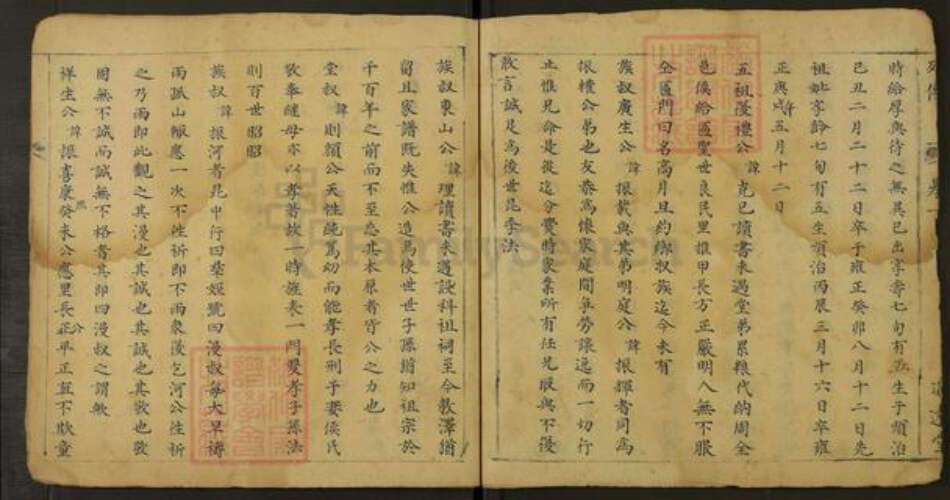 列傳
時給厚與待之無異已出享壽七旬有五生于順治
己丑二月二十二日卒于雍正癸卯八月十二日先
祖妣享齡七旬有五生順治丙辰三月十六日卒雍
正庚戌年五月十二日
五祖陵禮公諱克已讀書未遇堂弟累粮代納周全
邑侯給匾聖世良民里推甲長方正嚴明人無不服
仝匾門曰名高月旦約鄉叔族迄今未有
族叔廣生公諱振載與其弟明庭公諱振輝者同為
振禮公弟也友恭為懷家庭間爭勞讓逸而一切行
止惟兄命是從迄分爨時家業所有任兄取與不優
敢言誠是為後世昆季法
族叔東山公諱理讀書未遇設科祖祠至今教澤猶
留且家譜既失惟公造為使世世子孫猶知祖宗於
千百年之前而不至忘其本原者皆公之力也
堂叔諱則額公天性純篤幼而能孝長刑于妻侯氏
敬奉繼母亦以孝著故一時旌表一門雙孝子孫法
則百世昭昭
族叔諱振河者昆中行四葉姪號曰漫叔每大旱禱
雨誠山厰應一次不往祈即下雨衆復乞河公往祈
之乃雨即此觀之其漫也其誠也其誠也其敬也敬
固無不誠而誠無不格者其即四漫叔之謂歟
祥生公諱振喜康熙癸未公應里長正平正直不欺童
FamilySearch